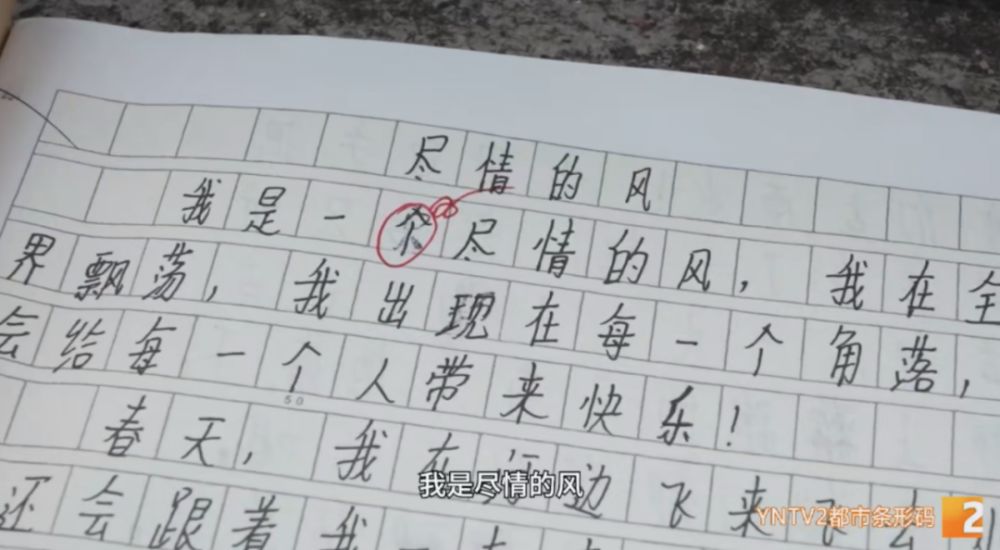 尽情的风
我是一个尽情的风，我在全
界飘荡，我出现在每一个角落，
会给每一个人带来快乐！
50
春天，我在河边飞来飞去
还会跟着我一
我是尽情的风
YNTV2都市条形码 2